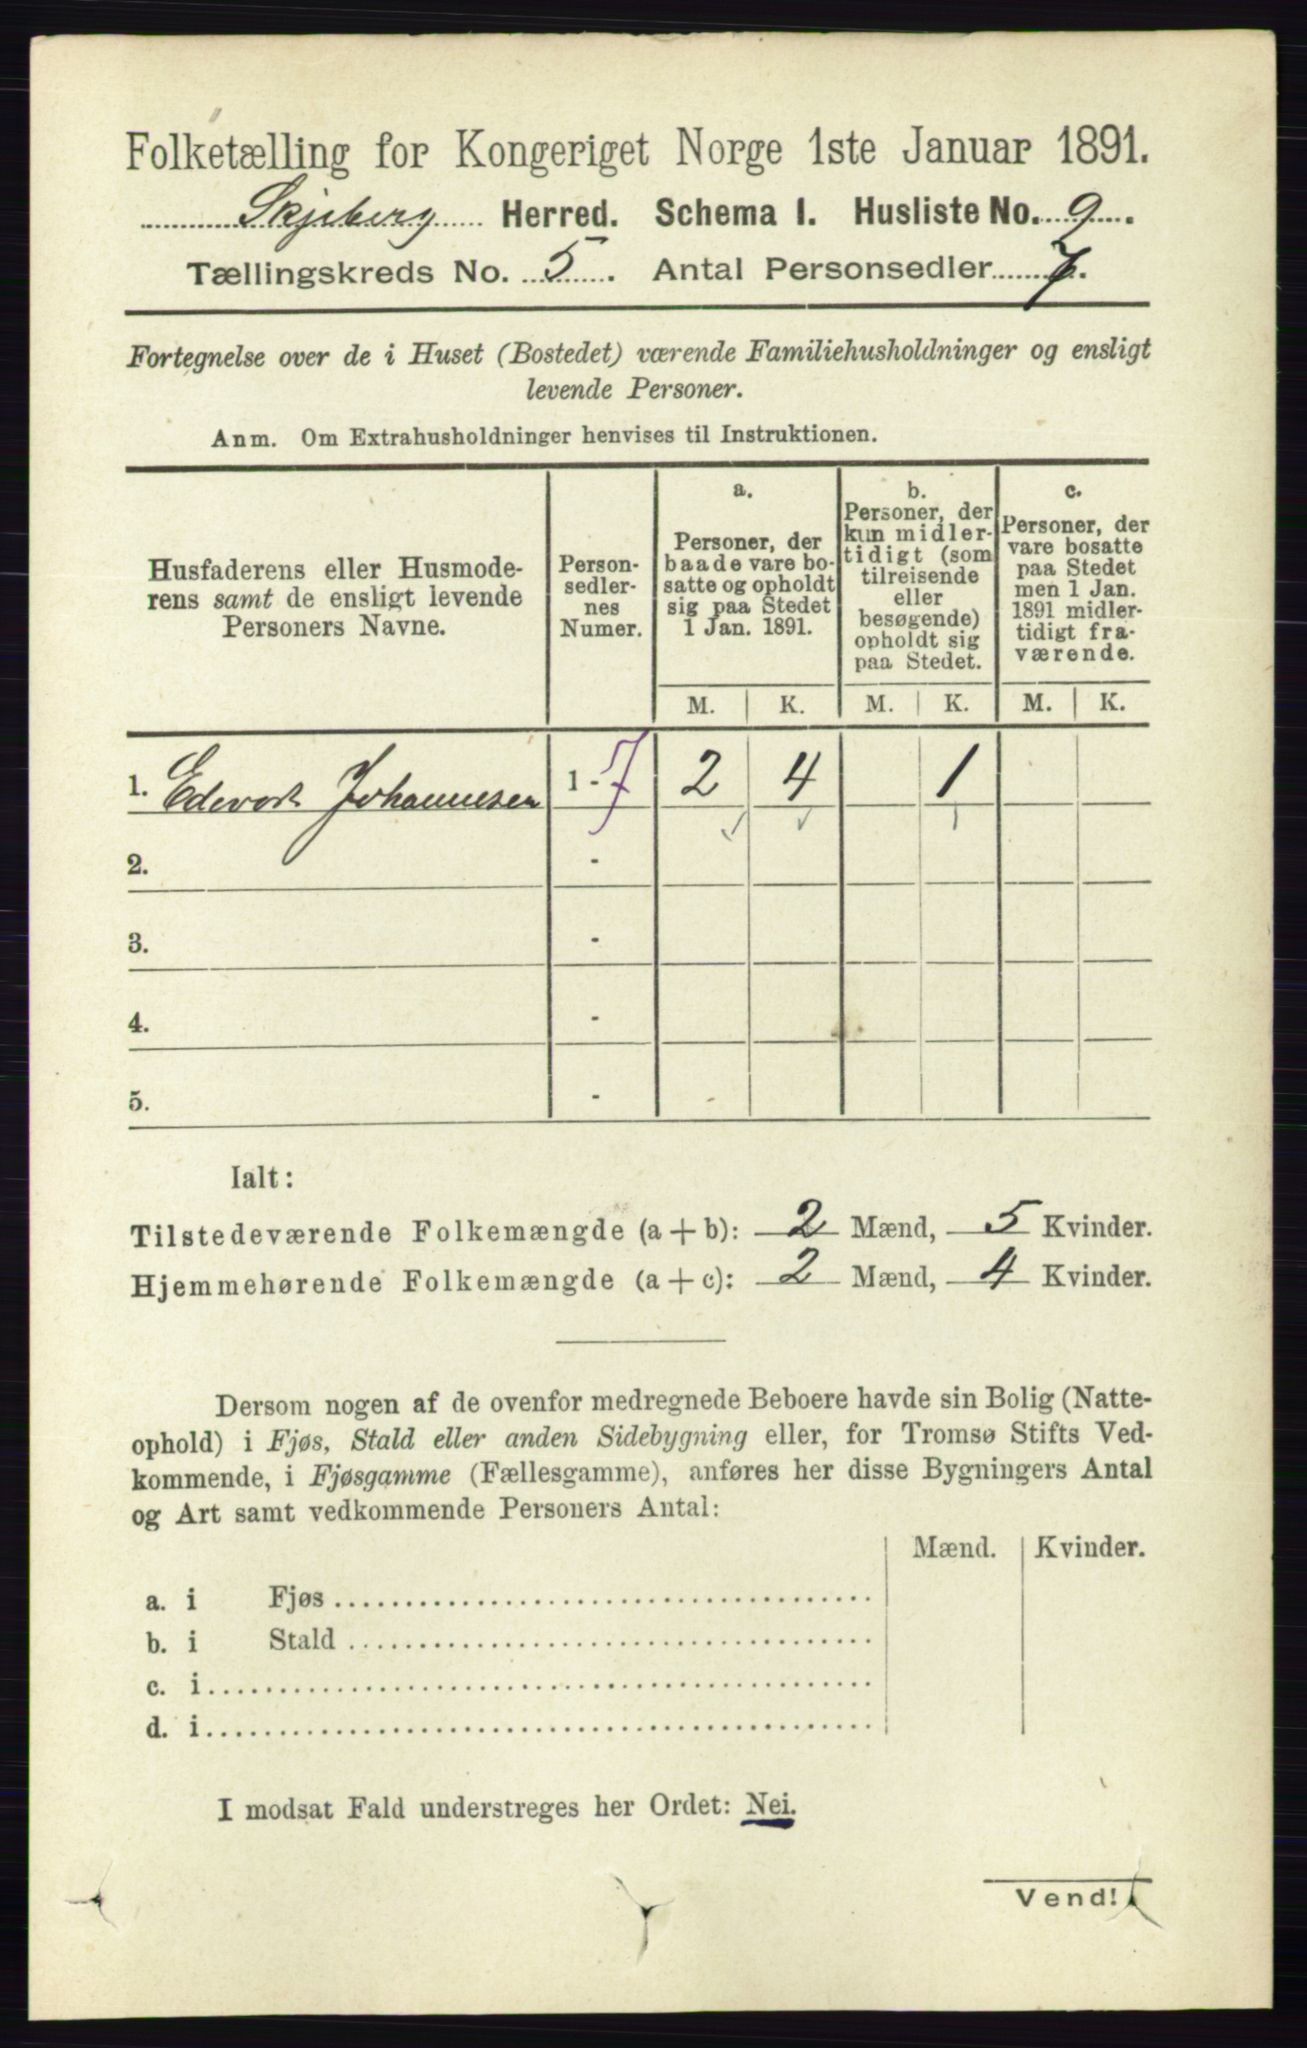 Folketælling for Kongeriget Norge 1ste Januar 1891.
Skjeberg Herred. Schema I. Husliste No. 9.
Tællingskreds No. 5. Antal Personsedler 7.
Fortegnelse over de i Huset (Bostedet) værende Familiehusholdninger og ensligt
levende Personer.
Anm. Om Extrahusholdninger henvises til Instruktionen.
Husfaderens eller Husmode-
rens samt de ensligt levende
Personers Navne.
Person-
sedler-
nes
Numer.
a.
Personer, der
baade vare bo-
satte og opholdt
sig paa Stedet
1 Jan. 1891.
b.
Personer, der
kun midler-
tidigt (som
tilreisende
eller
besøgende)
opholdt sig
paa Stedet.
c.
Personer, der
vare bosatte
paa Stedet
men 1 Jan.
1891 midler-
tidigt fra-
værende.
M. K. M. K. M. K.
1. Edvart Johannesen 1 - 7 2 4 1
2. -
3. -
4. -
5. -
Ialt:
Tilstedeværende Folkemængde (a + b): 2 Mænd, 5 Kvinder.
Hjemmehørende Folkemængde (a + c): 2 Mænd, 4 Kvinder.
Dersom nogen af de ovenfor medregnede Beboere havde sin Bolig (Natte-
ophold) i Fjøs, Stald eller anden Sidebygning eller, for Tromsø Stifts Ved-
kommende, i Fjøsgamme (Fællesgamme), anføres her disse Bygningers Antal
og Art samt vedkommende Personers Antal:
Mænd. Kvinder.
a. i Fjøs
b. i Stald
c. i
d. i
I modsat Fald understreges her Ordet: Nei.
Vend!